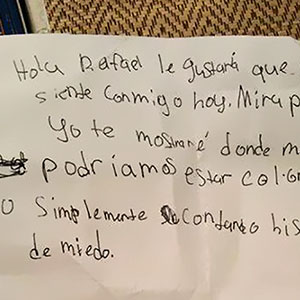 Hola Rafael le gustará que
siente conmigo hoy. Mira p
Yo te mostraré donde m
podriamos estar col
o simplemente contando his
de miedo.